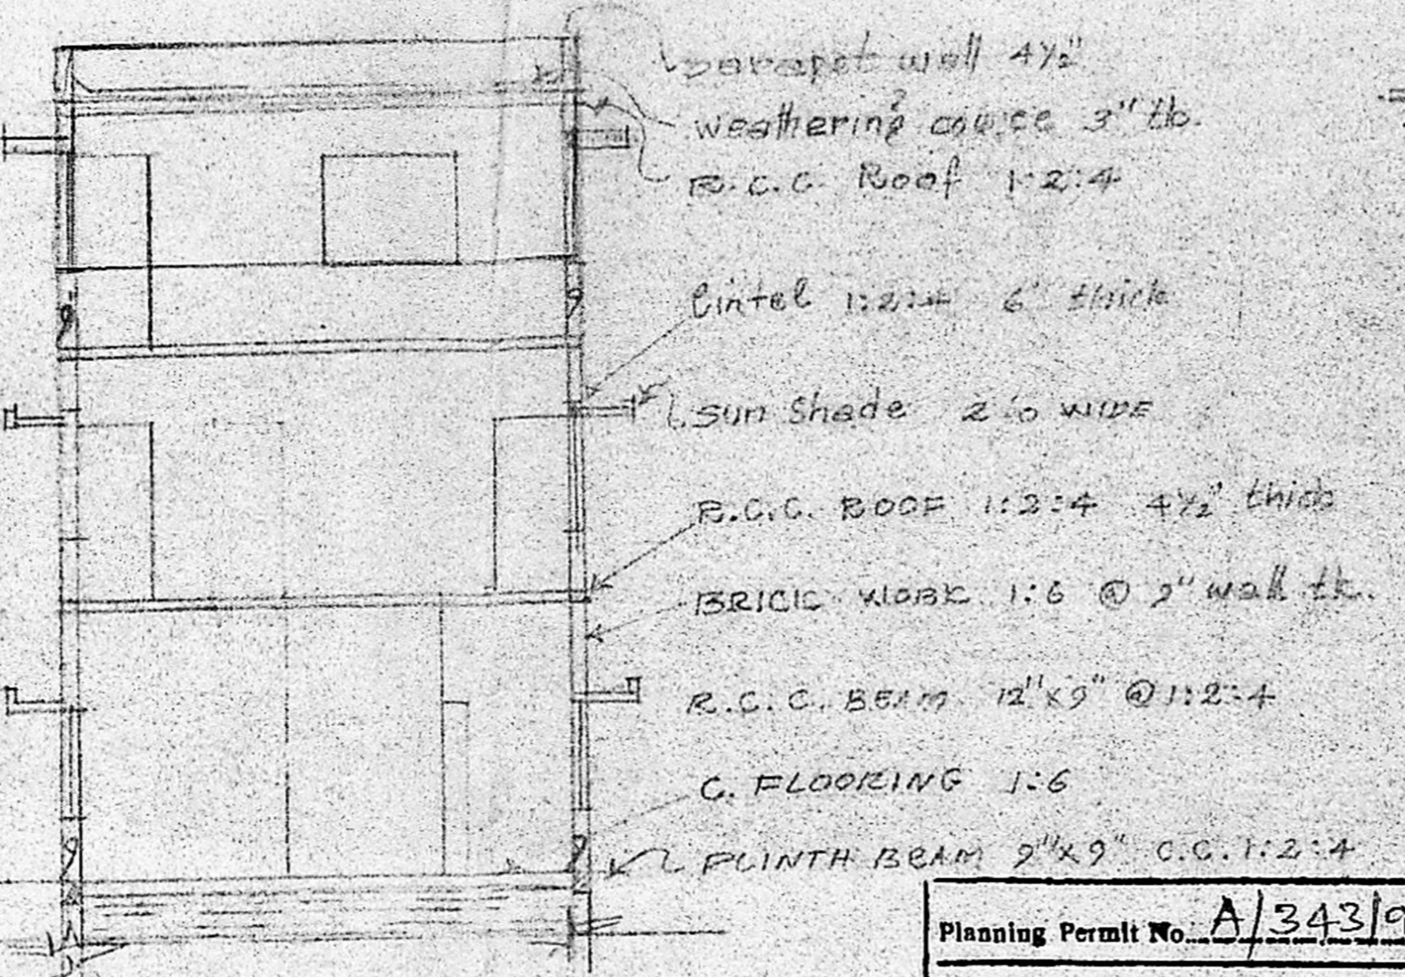 parapet wall 4½"
weathering course 3" tk.
R.C.C. Roof 1:2:4
lintel 1:2:4 6" thick
sun shade 2'0 WIDE
R.C.C. ROOF 1:2:4 4½" thick
BRICK WORK 1:6 @ 9" wall tk.
R.C.C. BEAM 12"x9" @ 1:2:4
C. FLOORING 1:6
PLINTH BEAM 9"x9" C.C. 1:2:4
Planning Permit No. A/343/9